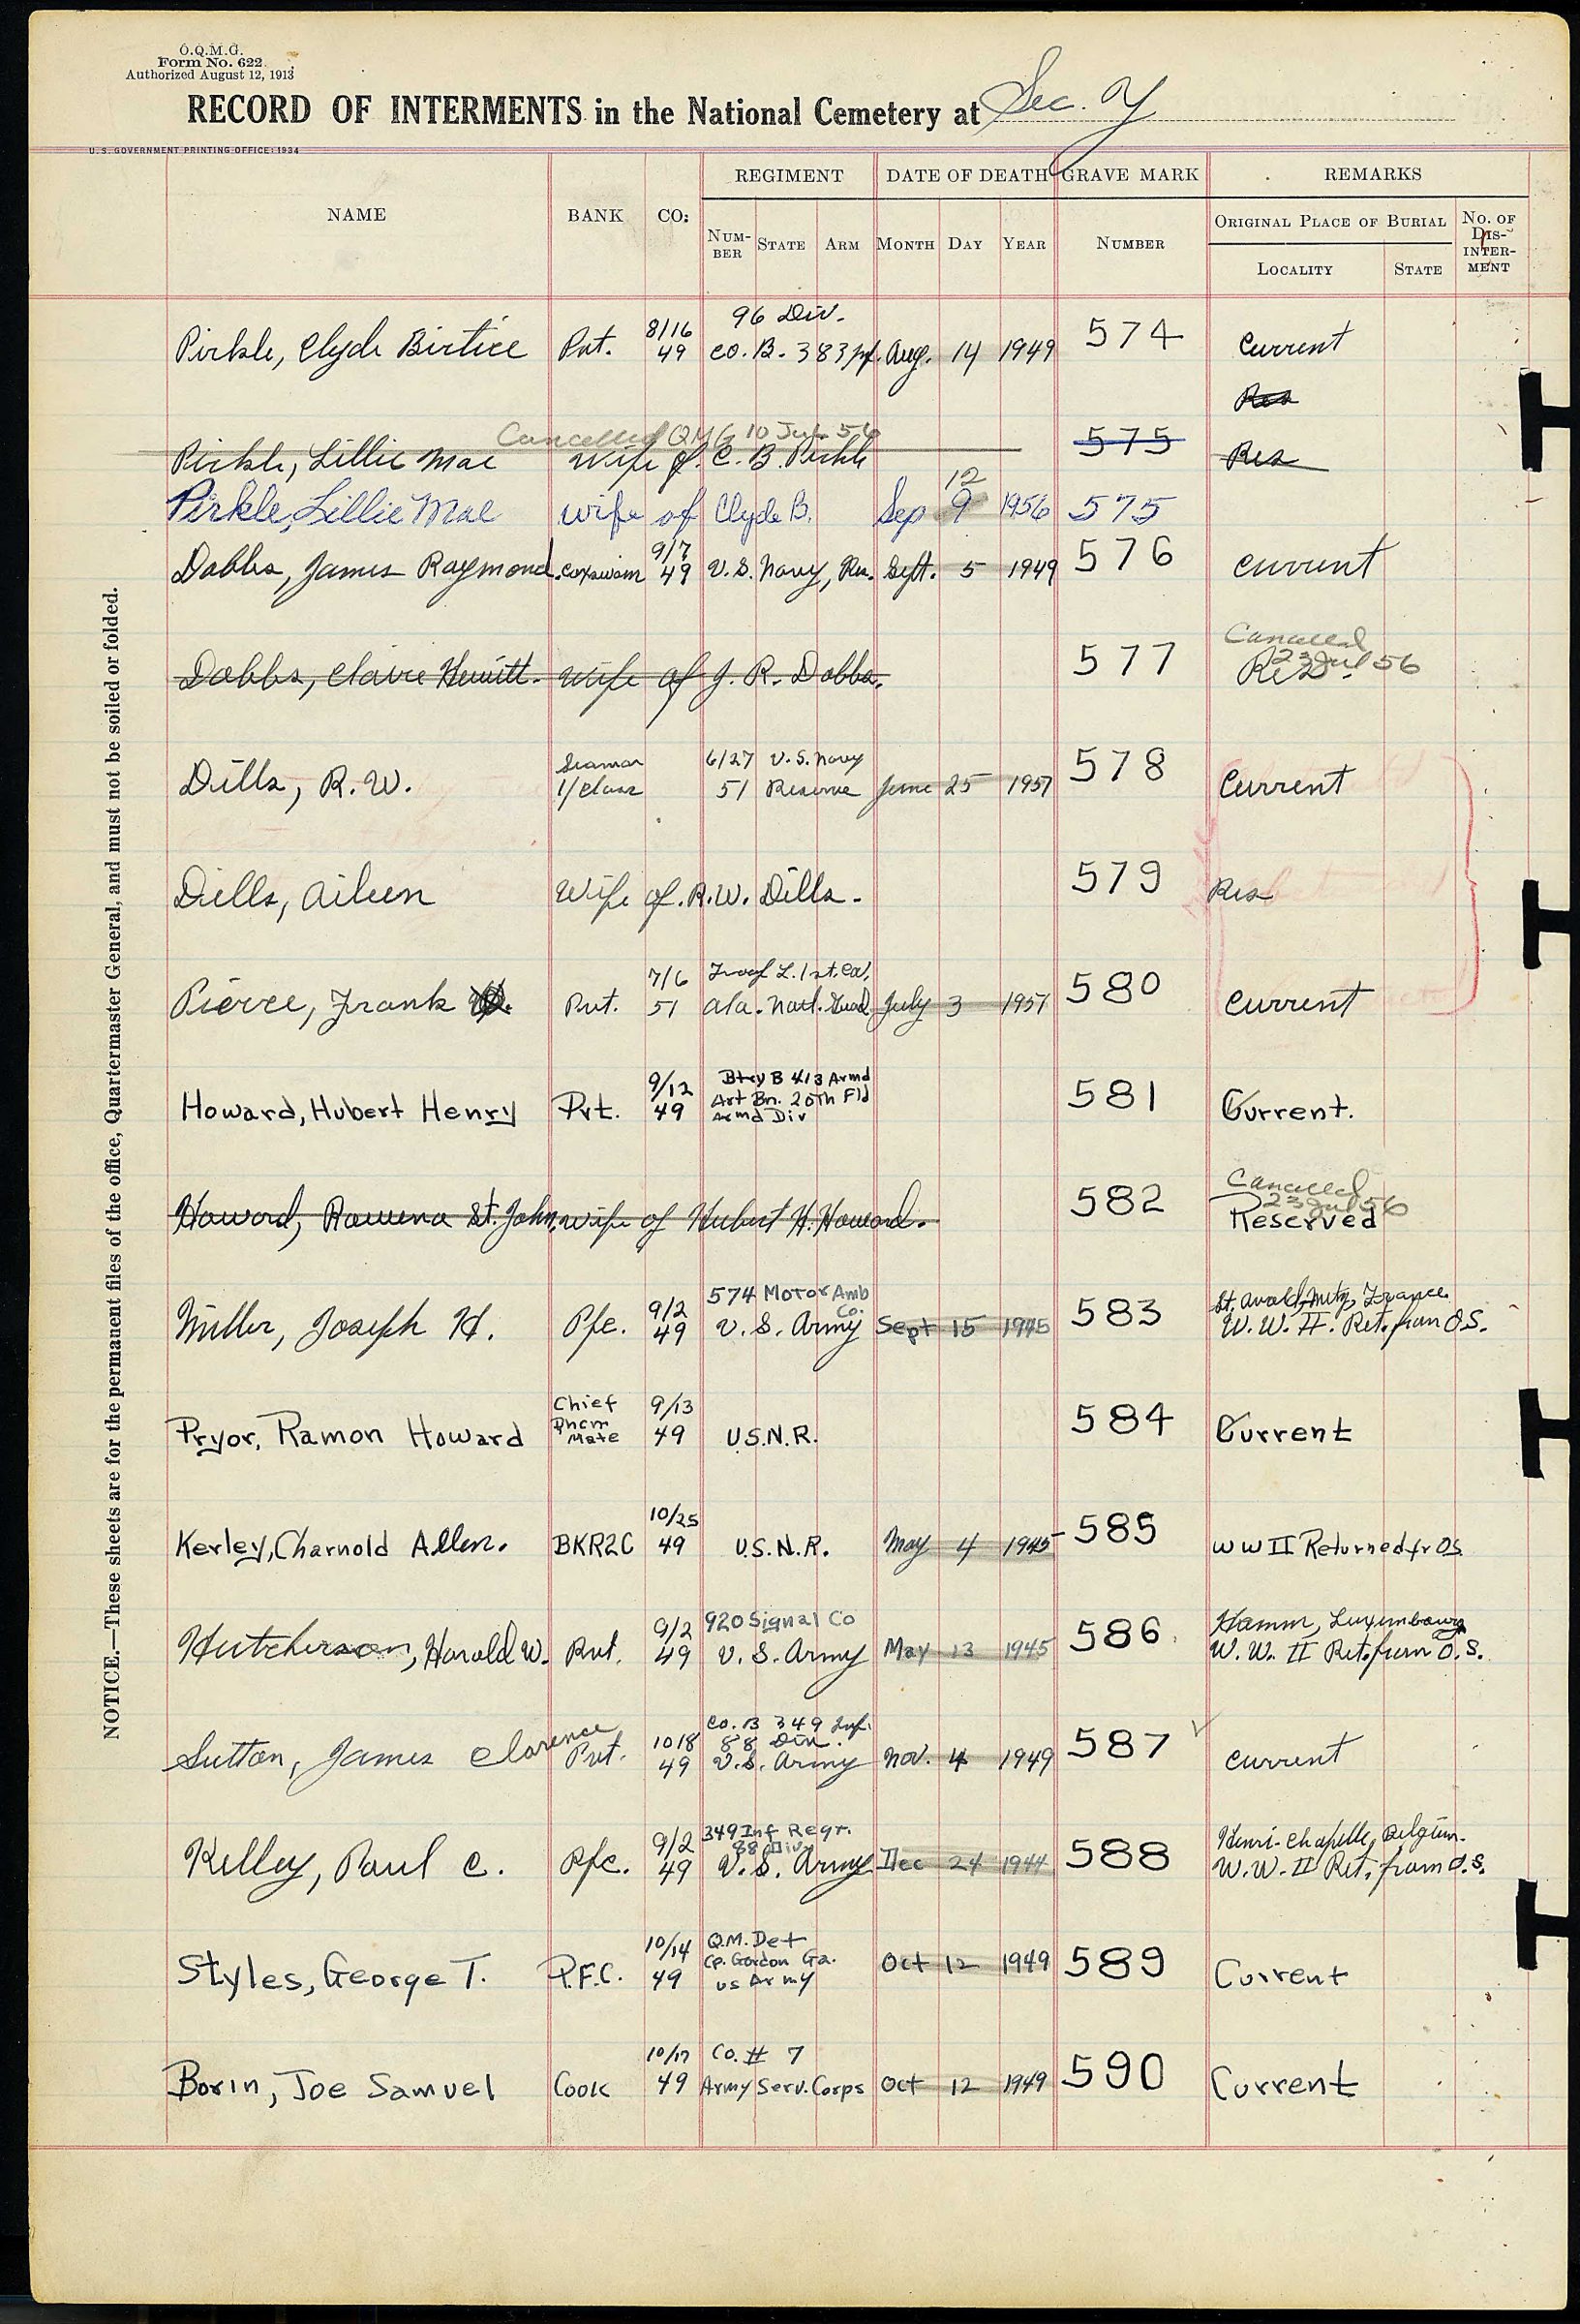 O.Q.M.G.
Form No. 622
Authorized August 12, 1913
RECORD OF INTERMENTS in the National Cemetery at Sec. Y
U. S. GOVERNMENT PRINTING OFFICE: 1934
NAME RANK CO: REGIMENT DATE OF DEATH GRAVE MARK REMARKS
NUMBER STATE ARM MONTH DAY YEAR NUMBER ORIGINAL PLACE OF BURIAL NO. OF DISINTERMENT
LOCALITY STATE
8/16 96 Div.
Pirkle, Clyde Birtice Pvt. 49 Co. B. 383 Inf. Aug. 14 1949 574 Current
Res
Cancelled QMG 10 Jul 56
Pirkle, Lillie Mae wife of C. B. Pirkle 575 Res
12
Pirkle, Lillie Mae wife of Clyde B. Sep 9 1956 575
9/7
Dobbs, James Raymond. Coxswain 49 U.S. Navy, Res. Sept. 5 1949 576 Current
Cancelled
23 Jul 56
Dobbs, Claire Hewitt. wife of J. R. Dobbs. 577 Res.
Seaman 6/27 U.S. Navy
Dills, R. W. 1/Class 51 Reserve June 25 1951 578 Current
Dills, Aileen Wife of R.W. Dills. 579 Res
7/6 Troop L. 1st. Cav.
Pierce, Frank Pvt. 51 Ala. Natl. Guad July 3 1951 580 Current
9/12 Btry B 413 Armd
Art Bn. 20th Fld
Howard, Hubert Henry Pvt. 49 Armd Div 581 Current.
Cancelled
23 Jul 56
Howard, Rowena St. John, wife of Hubert H. Howard. 582 Reserved
9/2 574 Motor Amb Co. St. Avold, Metz, France
Miller, Joseph H. Pfc. 49 U. S. Army Sept 15 1945 583 W. W. II. Ret. from O.S.
Chief 9/13
Pryor, Ramon Howard Mate 49 U.S.N.R. 584 Current
10/25
Kerley, Charnold Allen. BKR2C 49 U.S.N.R. May 4 1945 585 WW II Returned fr OS.
9/2 920 Signal Co Hamm, Luxembourg
Hutcherson, Harold W. Pvt. 49 U. S. Army May 13 1945 586 W. W. II Ret. from O.S.
Co. B 349 Inf.
10/8 88 Div.
Sutton, James Clarence Pvt. 49 U.S. Army Nov. 4 1949 587 Current
9/2 349 Inf Regr. Henri-Chapelle, Belgium.
88 Div
Kelley, Paul C. Pfc. 49 U. S. Army Dec 24 1944 588 W. W. II Ret. from O.S.
10/14 Q.M. Det
Cp. Gordon Ga.
Styles, George T. P.F.C. 49 US Army Oct 12 1949 589 Current
10/17 Co. # 7
Borin, Joe Samuel Cook 49 Army Serv. Corps Oct 12 1949 590 Current
NOTICE.—These sheets are for the permanent files of the office, Quartermaster General, and must not be soiled or folded.